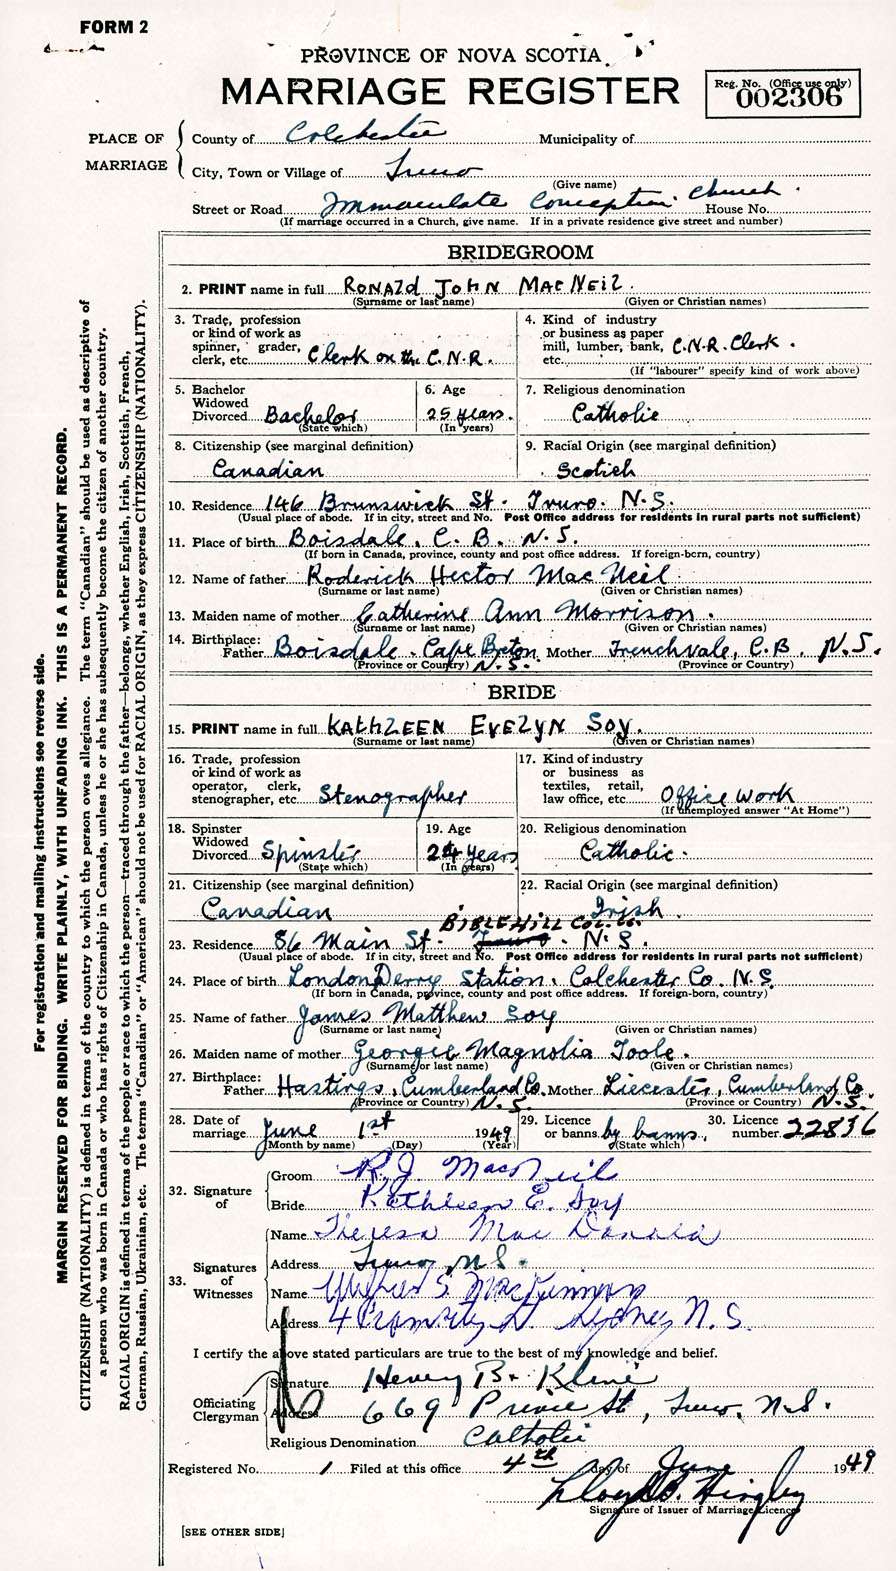 FORM 2
PROVINCE OF NOVA SCOTIA
MARRIAGE REGISTER
Reg. No. (Office use only)
002306
PLACE OF MARRIAGE
County of Colchester Municipality of
City, Town or Village of Truro
(Give name)
Street or Road Immaculate Conception Church. House No.
(If marriage occurred in a Church, give name. If in a private residence give street and number)
BRIDEGROOM
2. PRINT name in full RONALD JOHN MACNEIL.
(Surname or last name) (Given or Christian names)
3. Trade, profession or kind of work as spinner, grader, clerk, etc. Clerk on the C.N.R.
4. Kind of industry or business as paper mill, lumber, bank, etc. C.N.R. Clerk.
(If "labourer" specify kind of work above)
5. Bachelor Widowed Divorced Bachelor
(State which)
6. Age 25 years.
(In years)
7. Religious denomination Catholic
8. Citizenship (see marginal definition)
Canadian
9. Racial Origin (see marginal definition)
Scotish
10. Residence 146 Brunswick St. Truro. N.S.
(Usual place of abode. If in city, street and No. Post Office address for residents in rural parts not sufficient)
11. Place of birth Boisdale, C.B. N.S.
(If born in Canada, province, county and post office address. If foreign-born, country)
12. Name of father Roderick Hector MacNeil
(Surname or last name) (Given or Christian names)
13. Maiden name of mother Catherine Ann Morrison.
(Surname or last name) (Given or Christian names)
14. Birthplace: Father Boisdale. Cape Breton N.S. Mother Frenchvale, C.B. N.S.
(Province or Country) (Province or Country)
BRIDE
15. PRINT name in full KATHLEEN EVELYN SOY.
(Surname or last name) (Given or Christian names)
16. Trade, profession or kind of work as operator, clerk, stenographer, etc. Stenographer
17. Kind of industry or business as textiles, retail, law office, etc. Office Work
(If unemployed answer "At Home")
18. Spinster Widowed Divorced Spinster
(State which)
19. Age 24 years
(In years)
20. Religious denomination Catholic.
21. Citizenship (see marginal definition)
Canadian
22. Racial Origin (see marginal definition)
Irish
BIBLE HILL COL. Co.
23. Residence 86 Main St. Truro. N.S.
(Usual place of abode. If in city, street and No. Post Office address for residents in rural parts not sufficient)
24. Place of birth LondonDerry Station. Colchester Co. N.S.
(If born in Canada, province, county and post office address. If foreign-born, country)
25. Name of father James Matthew Soy
(Surname or last name) (Given or Christian names)
26. Maiden name of mother Georgie Magnolia Toole.
(Surname or last name) (Given or Christian names)
27. Birthplace: Father Hastings, Cumberland Co. N.S. Mother Liecester, Cumberland Co. N.S.
(Province or Country) (Province or Country)
28. Date of marriage June 1st 1949
(Month by name) (Day) (Year)
29. Licence or banns by banns.
(State which)
30. Licence number 22836
32. Signature of
Groom R.J. MacNeil
Bride Kathleen E. Soy
33. Signatures of Witnesses
Name Theresa MacDonald
Address Truro, N.S.
Name S. MacKinnon
Address 4 St. Sydney N.S.
I certify the above stated particulars are true to the best of my knowledge and belief.
Officiating Clergyman
Signature Henry B. Kline
Address 669 Prince St, Truro, N.S.
Religious Denomination Catholic
Registered No. 1 Filed at this office 4th day of June 1949
Lloyd B. Hingley
Signature of Issuer of Marriage Licences
[SEE OTHER SIDE]
For registration and mailing instructions see reverse side.
MARGIN RESERVED FOR BINDING. WRITE PLAINLY, WITH UNFADING INK. THIS IS A PERMANENT RECORD.
CITIZENSHIP (NATIONALITY) is defined in terms of the country to which the person owes allegiance. The term "Canadian" should be used as descriptive of
a person who was born in Canada or who has rights of Citizenship in Canada, unless he or she has subsequently become the citizen of another country.
RACIAL ORIGIN is defined in terms of the people or race to which the person—traced through the father—belongs, whether English, Irish, Scottish, French,
German, Russian, Ukrainian, etc. The terms "Canadian" or "American" should not be used for RACIAL ORIGIN, as they express CITIZENSHIP (NATIONALITY).